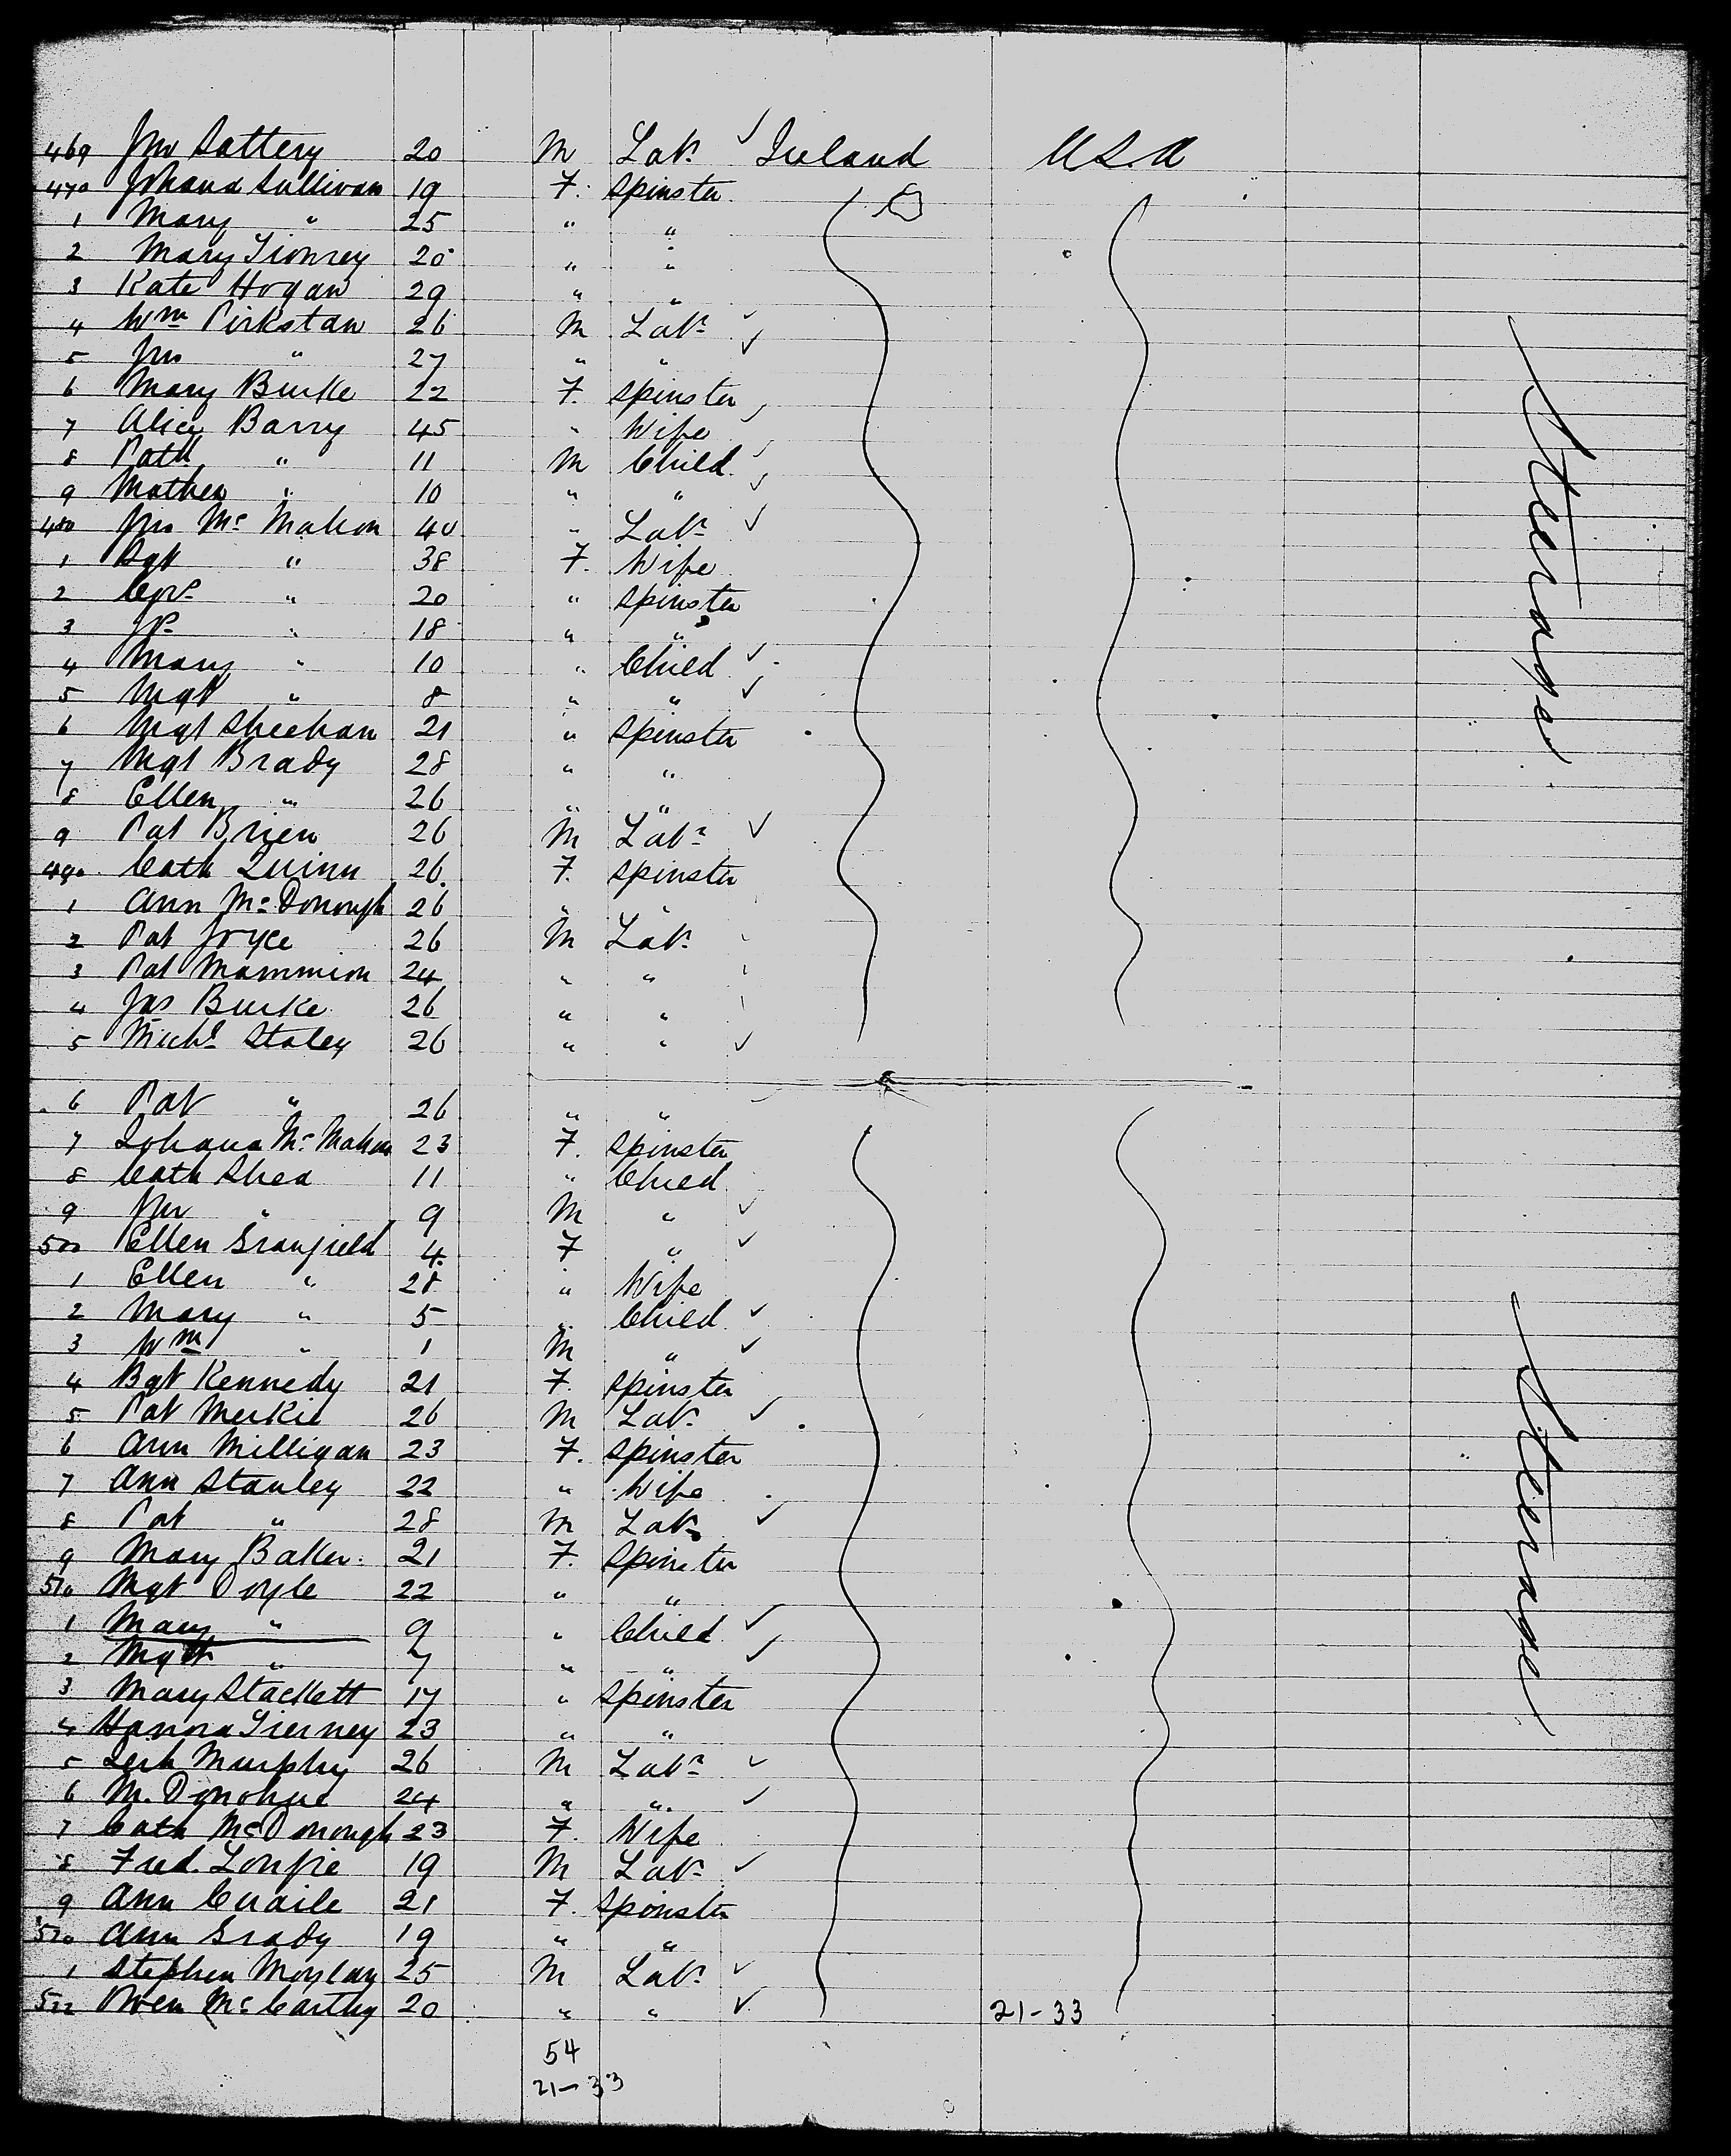 469 Jno Sattery 20 M Labr Ireland U.S.A
470 Johana Sullivan 19 F. Spinster
1 Mary " 25 " "
2 Mary Tionrey 20 " "
3 Kate Hogan 29 " "
4 Wm Pirkstan 26 M Labr
5 Jno " 27 " "
6 Mary Burke 22 F. Spinster
7 Alice Barry 45 " Wife
8 Patk " 11 M Child
9 Mathew " 10 " "
480 Jno Mc Mahon 40 " Labr
1 Bgt " 38 F. Wife
2 " 20 " Spinster
3 " 18 " "
4 Mary " 10 " Child
5 Mgt " 8 " "
6 Mgt Sheehan 21 " Spinster
7 Mgt Brady 28 " "
8 Ellen " 26 " "
9 Pat Brien 26 M Labr
490 Cath Quinn 26 F. Spinster
1 Ann McDonough 26 " "
2 Pat Joyce 26 M Labr
3 Pat Mammion 24 " "
4 Jas Burke 26 " "
5 Michl Staley 26 " "
6 Pat " 26 " "
7 Johana Mc Mahon 23 F. Spinster
8 Cath Shea 11 " Child
9 Jno " 9 M "
500 Ellen Granfield 4 F "
1 Ellen " 28 " Wife
2 Mary " 5 " Child
3 Wm " 1 M "
4 Bgt Kennedy 21 F. Spinster
5 Pat Merkie 26 M Labr
6 Ann Milligan 23 F. Spinster
7 Ann Stanley 22 " Wife
8 Pat " 28 M Labr
9 Mary Baker 21 F. Spinster
510 Mgt Doyle 22 " "
1 Mary " 9 " Child
2 Mgt " 7 " "
3 Mary Stackett 17 " Spinster
4 Hanora Tierney 23 " "
5 Jerh Murphy 26 M Labr
6 M. Donohue 24 " "
7 Cath McDonough 23 F. Wife
8 Fred. 19 M Labr
9 Ann Cuaile 21 F. Spinster
520 Ann Grady 19 " "
1 Stephen Moylan 25 M Labr
522 Owen Mc Carthy 20 " " 21-33
54
21-33
Steerage
Steerage